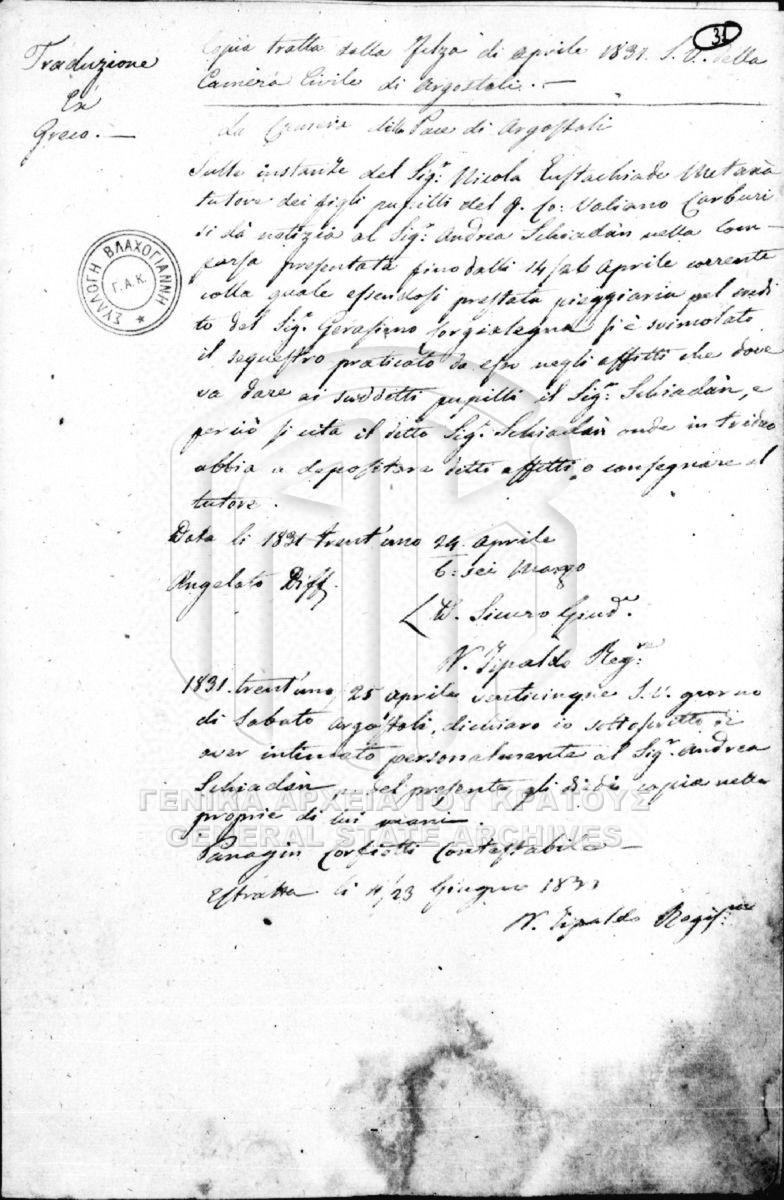 31
Traduzione
Ex
Greco.
Copia tratta dalla Filza di aprile 1831. S. V. della
Camera Civile di Argostoli.
La Camera della Pace di Argostoli
Sulle instanze del Sigr. Nicola Eustachiade Metaxà
tutore dei figli pupilli del q. Co: Valiano Carburi
si dà notizia al Sigr. Andrea Schiadàn nella Com-
parsa presentata fino dalli 14/26 Aprile corrente
colla quale essendosi prestata pieggiaria pel credi
to del Sigr. Gerasimo Corgialegna si è svincolato
il sequestro praticato da esso negli affitti che dove
va dare ai suddetti pupilli il Sigr. Schiadàn, e
perciò si cita il detto Sigr. Schiadàn onde in triduo
abbia a depositare detti affitti o consegnare al
tutore.
Data li 1831 trent'uno 24 Aprile
6: sei Maggio
Angelato Diff.
W. Sicuro Giude.
N. Tipaldo Regre
1831. trent'uno 25 aprile venticinque S. V. giorno
di Sabato Argostoli, dichiaro io sottoscritto di
aver intimato personalmente al Sigr. Andrea
Schiadàn, e del presente gli diedi copia nelle
proprie di lui mani.
Panagin Corfiotti Contestabile
Estratta li 11/23 Giugno 1831
N. Tipaldo Regis.re
ΣΥΛΛΟΓΗ ΒΛΑΧΟΓΙΑΝΝΗ
Γ.Α.Κ.
ΓΕΝΙΚΑ ΑΡΧΕΙΑ ΤΟΥ ΚΡΑΤΟΥΣ
GENERAL STATE ARCHIVES